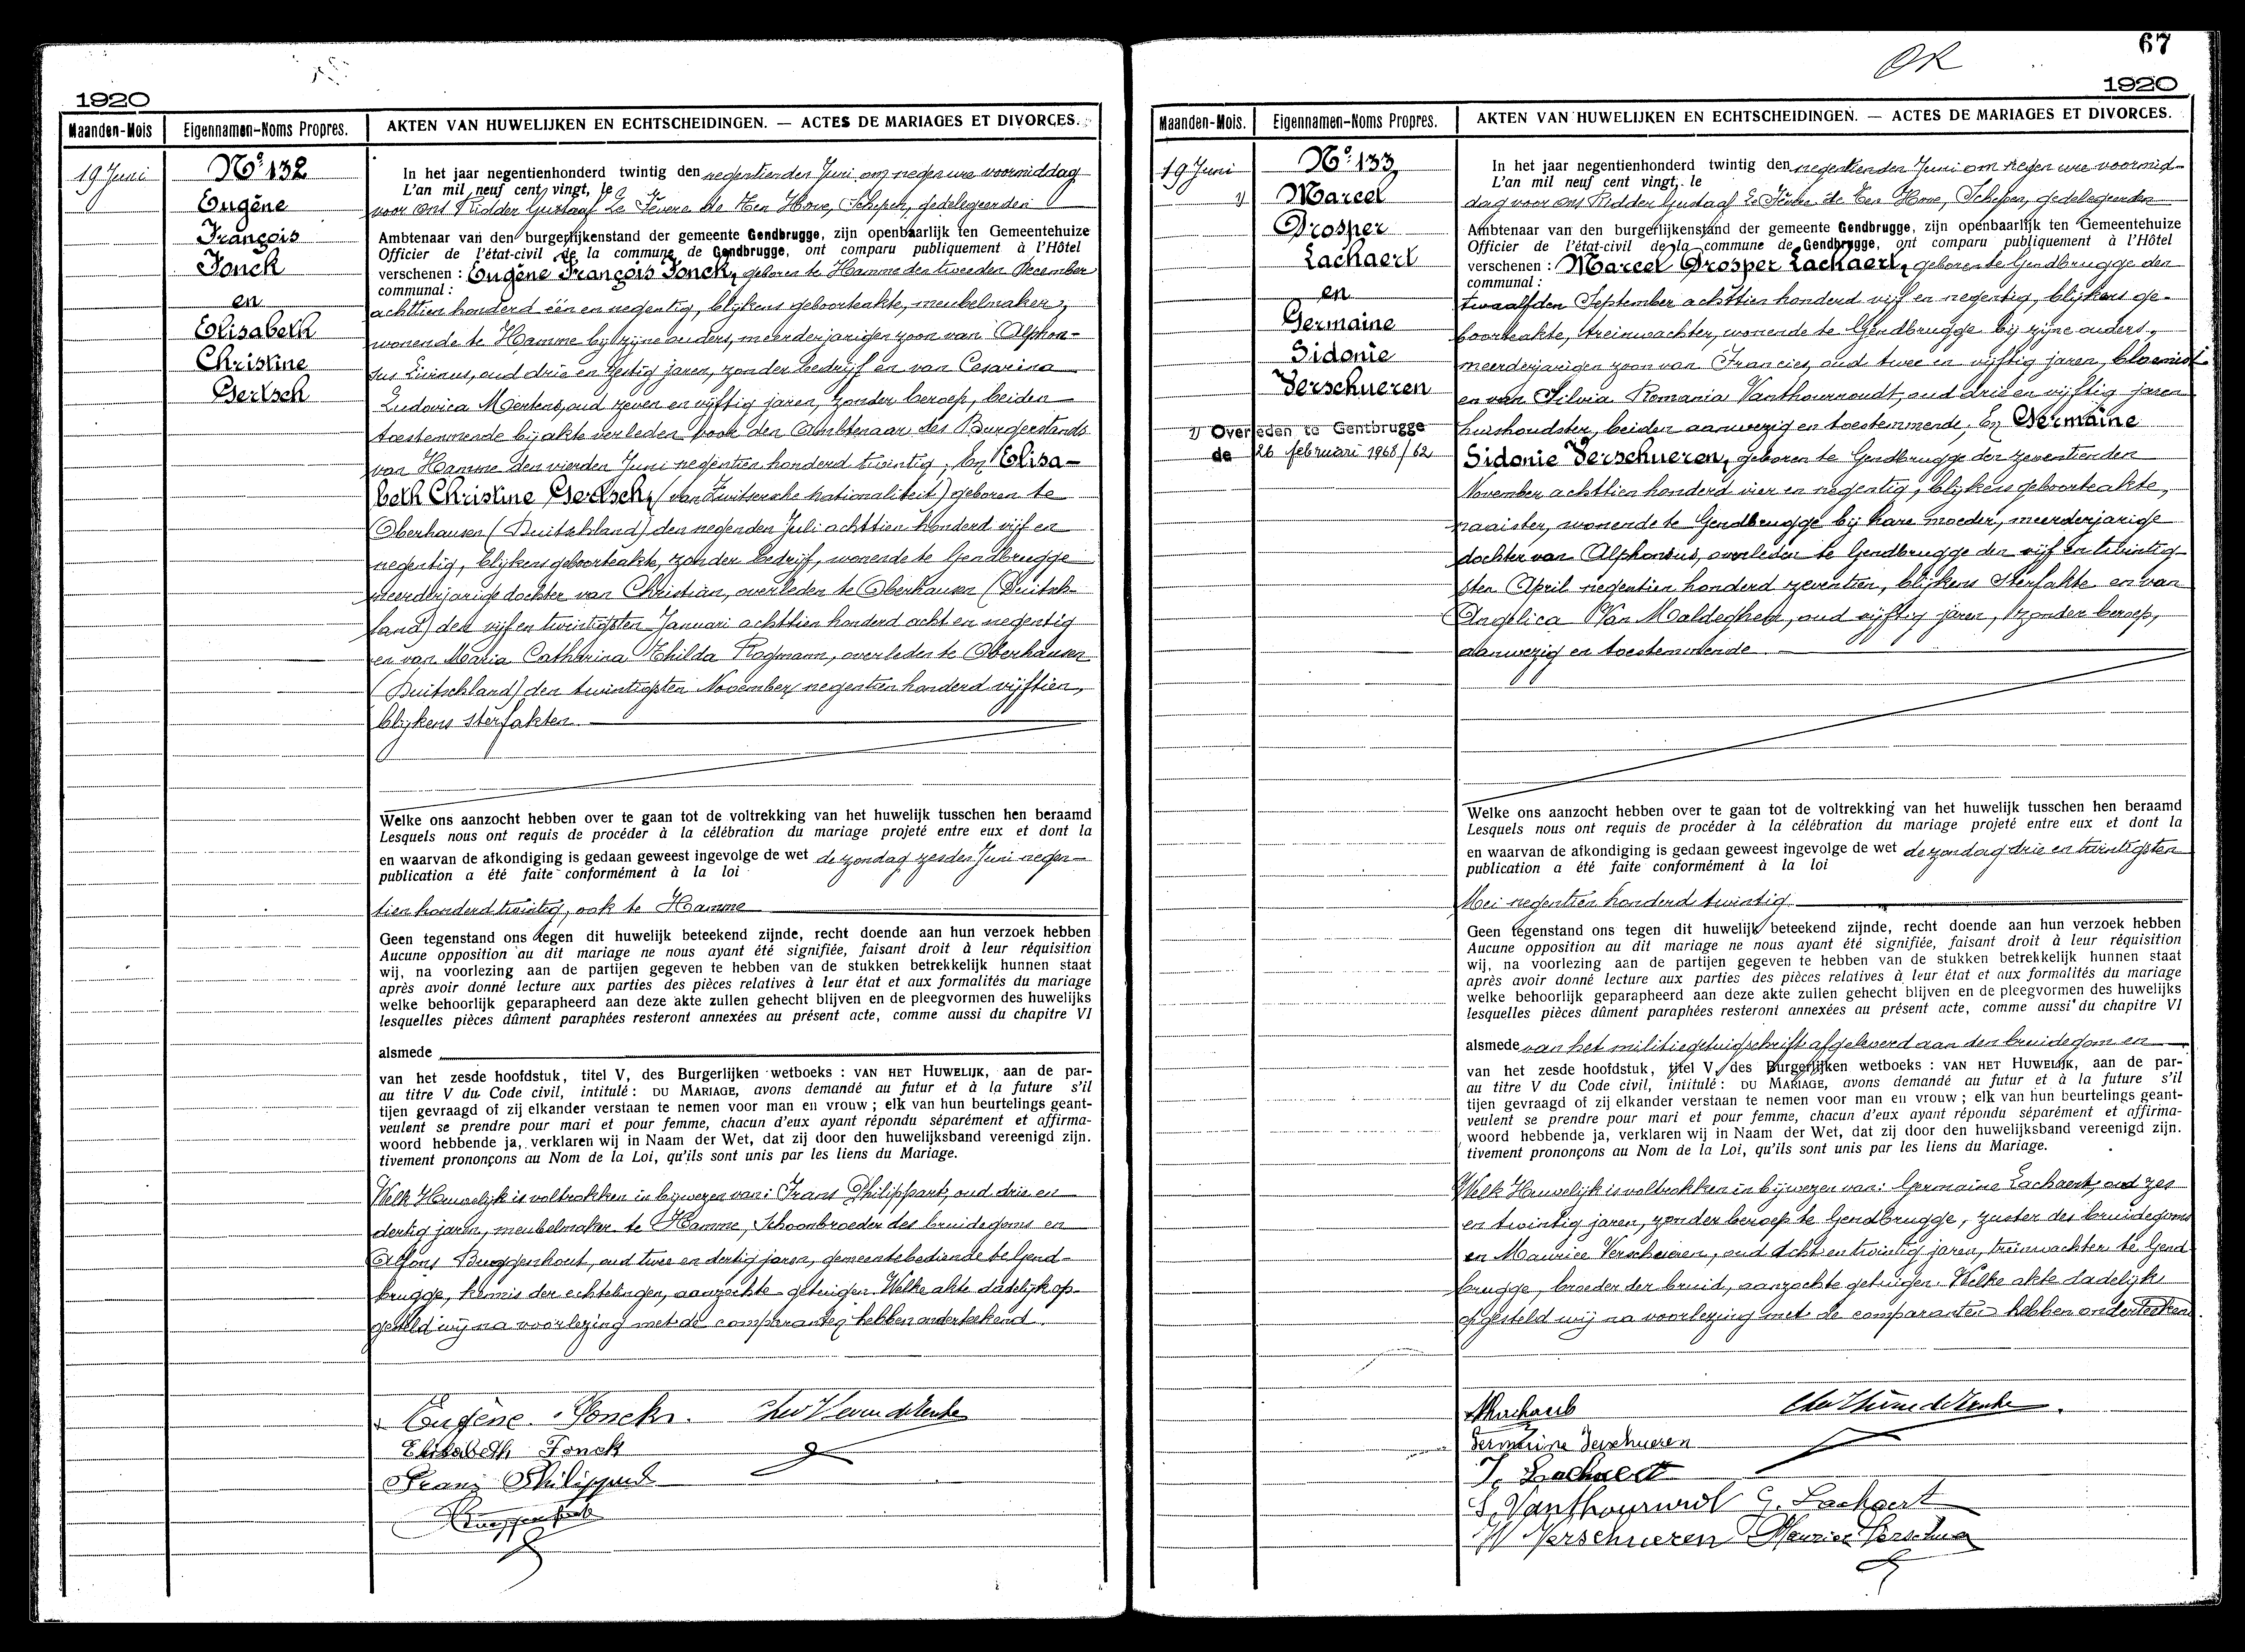 1920
Maanden-Mois
Eigennamen-Noms Propres.
AKTEN VAN HUWELIJKEN EN ECHTSCHEIDINGEN. — ACTES DE MARIAGES ET DIVORCES.
19 Juni
No: 132
Eugêne
François
Fonck
en
Elisabeth
Christine
Gertsch
In het jaar negentienhonderd twintig den negentienden Juni om negen ure voormiddag
L'an mil neuf cent vingt, le
voor ons Ridder Gustaaf Le Fevere de Ten Hove, Schepen, gedelegeerden
Ambtenaar van den burgerlijkenstand der gemeente Gendbrugge, zijn openbaarlijk ten Gemeentehuize
Officier de l'état-civil de la commune de Gendbrugge, ont comparu publiquement à l'Hôtel
verschenen : Eugêne François Fonck, geboren te Hamme den tweeden December
communal :
achttien honderd één en negentig, blijkens geboorteakte, meubelmaker,
wonende te Hamme bij zijne ouders, meerderjarigen zoon van Alphon-
sus Livinus, oud drie en zestig jaren, zonder bedrijf en van Cesarina
Ludovica Mertens, oud zeven en vijftig jaren, zonder beroep, beiden
toestemmende bij akte verleden voor den Ambtenaar des Burgerstands
van Hamme den vierden Juni negentien honderd twintig; En Elisa-
beth Christine Gertsch, (van Zwitsersche nationaliteit) geboren te
Oberhausen (Duitschland) den negenden Juli achttien honderd vijf en
negentig, blijkens geboorteakte, zonder bedrijf, wonende te Gendbrugge
meerderjarige dochter van Christian, overleden te Oberhausen (Duitsch-
land) den vijf en twintigsten Januari achttien honderd acht en negentig
en van Maria Catharina Thilda Rogmann, overleden te Oberhausen
(Duitschland) den twintigsten November negentien honderd vijftien,
blijkens sterfakten
Welke ons aanzocht hebben over te gaan tot de voltrekking van het huwelijk tusschen hen beraamd
Lesquels nous ont requis de procéder à la célébration du mariage projeté entre eux et dont la
en waarvan de afkondiging is gedaan geweest ingevolge de wet de zondag zesden Juni negen-
publication a été faite conformément à la loi
tien honderd twintig, ook te Hamme
Geen tegenstand ons tegen dit huwelijk beteekend zijnde, recht doende aan hun verzoek hebben
Aucune opposition au dit mariage ne nous ayant été signifiée, faisant droit à leur réquisition
wij, na voorlezing aan de partijen gegeven te hebben van de stukken betrekkelijk hunnen staat
après avoir donné lecture aux parties des pièces relatives à leur état et aux formalités du mariage
welke behoorlijk geparapheerd aan deze akte zullen gehecht blijven en de pleegvormen des huwelijks
lesquelles pièces dûment paraphées resteront annexées au présent acte, comme aussi du chapitre VI
alsmede
van het zesde hoofdstuk, titel V, des Burgerlijken wetboeks : VAN HET HUWELIJK, aan de par-
au titre V du Code civil, intitulé : DU MARIAGE, avons demandé au futur et à la future s'il
tijen gevraagd of zij elkander verstaan te nemen voor man en vrouw ; elk van hun beurtelings geant-
veulent se prendre pour mari et pour femme, chacun d'eux ayant répondu séparément et affirma-
woord hebbende ja, verklaren wij in Naam der Wet, dat zij door den huwelijksband vereenigd zijn.
tivement prononçons au Nom de la Loi, qu'ils sont unis par les liens du Mariage.
Welk Huwelijk is voltrokken in bijwezen van: Frans Philippart, oud drie en
dertig jaren, meubelmaker te Hamme, schoonbroeder des bruidegoms en
Alfons Buggenhout, oud twee en dertig jaren, gemeentebediende te Gend-
brugge, kennis der echtelingen, aanzochte getuigen. Welke akte dadelijk op-
gesteld wij na voorlezing met de comparanten hebben onderteekend.
Eugène Fonck.
Elisabeth Fonck
Franz Philippart
OK
67
1920
Maanden-Mois.
Eigennamen-Noms Propres.
AKTEN VAN HUWELIJKEN EN ECHTSCHEIDINGEN. — ACTES DE MARIAGES ET DIVORCES.
19 Juni
No: 133
1) Marcel
Prosper
Lachaert
en
Germaine
Sidonie
Verschueren
1) Overleden te Gentbrugge
de 26 februari 1968/62
In het jaar negentienhonderd twintig den negentienden Juni om negen ure voormid-
L'an mil neuf cent vingt, le
dag voor ons Ridder Gustaaf Le Fèvere de Ten Hove, Schepen, gedelegeerden
Ambtenaar van den burgerlijkenstand der gemeente Gendbrugge, zijn openbaarlijk ten Gemeentehuize
Officier de l'état-civil de la commune de Gendbrugge, ont comparu publiquement à l'Hôtel
verschenen : Marcel Prosper Lachaert, geboren te Gendbrugge den
communal :
twaalfden September achttien honderd vijf en negentig, blijkens ge-
boorteakte, treinwachter, wonende te Gendbrugge bij zijne ouders,
meerderjarigen zoon van Francies, oud twee en vijftig jaren, bloemist
en van Silvia Romania Vanthournoudt, oud drie en vijftig jaren
huishoudster, beiden aanwezig en toestemmende; En Germaine
Sidonie Verschueren, geboren te Gendbrugge den zeventienden
November achttien honderd vier en negentig, blijkens geboorteakte,
naaister, wonende te Gendbrugge bij hare moeder, meerderjarige
dochter van Alphonsus, overleden te Gendbrugge den vijf en twintig-
sten April negentien honderd zeventien, blijkens sterfakte en van
Angelica Van Maldeghem, oud vijftig jaren, zonder beroep,
aanwezig en toestemmende
Welke ons aanzocht hebben over te gaan tot de voltrekking van het huwelijk tusschen hen beraamd
Lesquels nous ont requis de procéder à la célébration du mariage projeté entre eux et dont la
en waarvan de afkondiging is gedaan geweest ingevolge de wet de zondag drie en twintigsten
publication a été faite conformément à la loi
Mei negentien honderd twintig
Geen tegenstand ons tegen dit huwelijk beteekend zijnde, recht doende aan hun verzoek hebben
Aucune opposition au dit mariage ne nous ayant été signifiée, faisant droit à leur réquisition
wij, na voorlezing aan de partijen gegeven te hebben van de stukken betrekkelijk hunnen staat
après avoir donné lecture aux parties des pièces relatives à leur état et aux formalités du mariage
welke behoorlijk geparapheerd aan deze akte zullen gehecht blijven en de pleegvormen des huwelijks
lesquelles pièces dûment paraphées resteront annexées au présent acte, comme aussi du chapitre VI
alsmede van het militiegetuigschrift afgeleverd aan den bruidegom en
van het zesde hoofdstuk, titel V, des Burgerlijken wetboeks : VAN HET HUWELIJK, aan de par-
au titre V du Code civil, intitulé : DU MARIAGE, avons demandé au futur et à la future s'il
tijen gevraagd of zij elkander verstaan te nemen voor man en vrouw ; elk van hun beurtelings geant-
veulent se prendre pour mari et pour femme, chacun d'eux ayant répondu séparément et affirma-
woord hebbende ja, verklaren wij in Naam der Wet, dat zij door den huwelijksband vereenigd zijn.
tivement prononçons au Nom de la Loi, qu'ils sont unis par les liens du Mariage.
Welk Huwelijk is voltrokken in bijwezen van: Germaine Lachaert, oud zes
en twintig jaren, zonder beroep te Gendbrugge, zuster des bruidegoms
en Maurice Verschueren, oud acht en twintig jaren, treinwachter te Gend-
brugge, broeder der bruid, aanzochte getuigen. Welke akte dadelijk
opgesteld wij na voorlezing met de comparanten hebben onderteekend.
Germaine Verschueren
F. Lachaert
S. Vanthournout G. Lachaert
W Verschueren Maurice Verschue